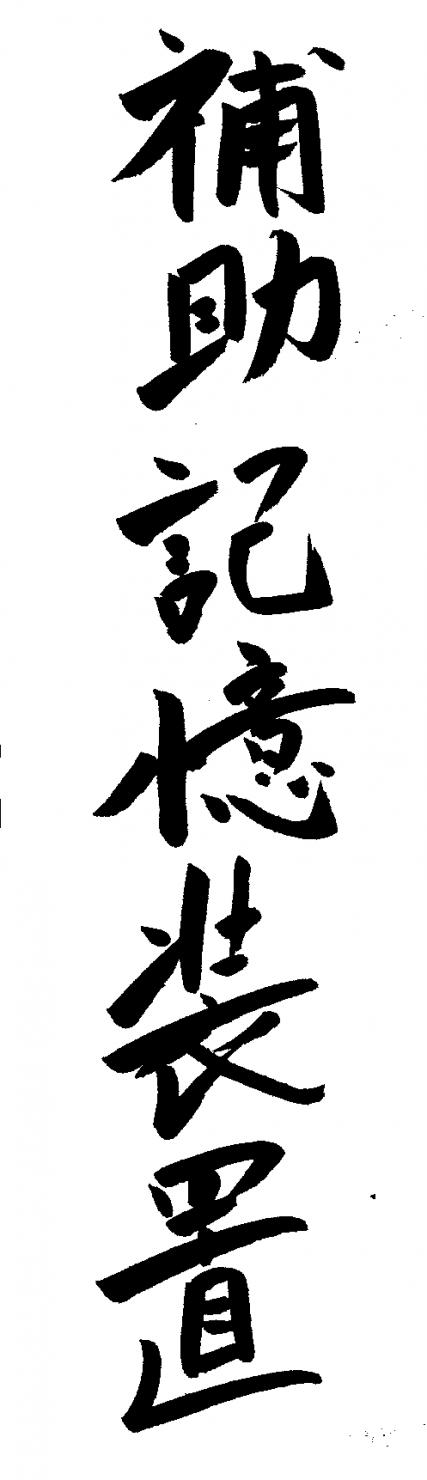 補助記憶装置